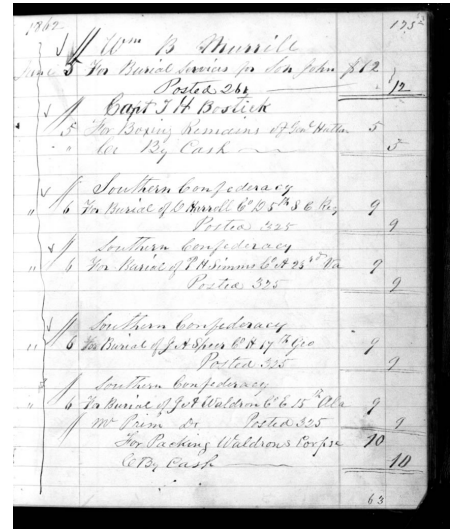 1862 175
Wm B Murrill
June 5 For Burial Services for Son John $12
Posted 264 12
Capt T. H Bostick
5 For Boxing Remains of Genl Hatton 5
" " Cr By Cash 5
Southern Confederacy
" 6 For Burial of D Harroll Co D 5th S C Reg 9
Posted 325 9
Southern Confederacy
" 6 For Burial of P H Simms Co A 23rd Va 9
Posted 325 9
Southern Confederacy
" 6 For Burial of J A Speer Co H 17th Geo 9
Posted 325 9
Southern Confederacy
" 6 For Burial of J A Waldron Co E 15th Ala 9
Mr Prim Dr. Posted 325 9
For Packing Waldrons Corpse 10
Cr By Cash 10
63